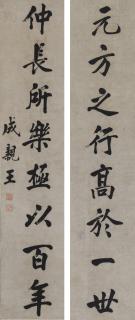 元方之行高於一世
仲長所樂極以百年
成親王